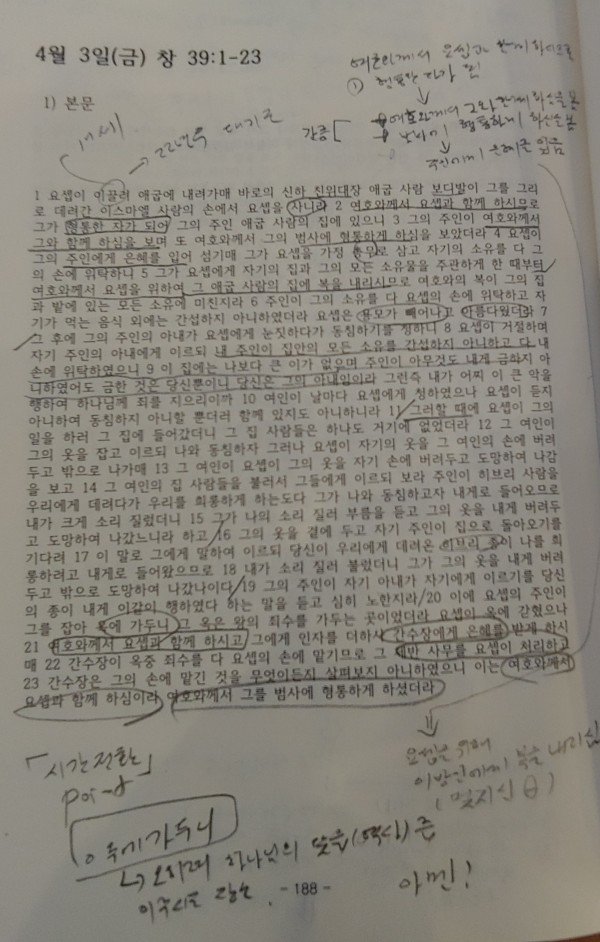 4월 3일(금) 창 39:1-23
여호와께서 요셉과 함께 하심으로
① 형통한 자가 됨
1) 본문
22년후
여호와께서 그와 함께 하심을 봄
형통하게 하심을 봄
주인에게 은혜를 입음
1 요셉이 이끌려 애굽에 내려가매 바로의 신하 친위대장 애굽 사람 보디발이 그를 그리
로 데려간 이스마엘 사람의 손에서 요셉을 사니라 2 여호와께서 요셉과 함께 하시므로
그가 형통한 자가 되어 그의 주인 애굽 사람의 집에 있으니 3 그의 주인이 여호와께서
그와 함께 하심을 보며 또 여호와께서 그의 범사에 형통하게 하심을 보았더라 4 요셉이
그의 주인에게 은혜를 입어 섬기매 그가 요셉을 가정 총무로 삼고 자기의 소유를 다 그
의 손에 위탁하니 5 그가 요셉에게 자기의 집과 그의 모든 소유물을 주관하게 한 때부터
여호와께서 요셉을 위하여 그 애굽 사람의 집에 복을 내리시므로 여호와의 복이 그의 집
과 밭에 있는 모든 소유에 미친지라 6 주인이 그의 소유를 다 요셉의 손에 위탁하고 자
기가 먹는 음식 외에는 간섭하지 아니하였더라 요셉은 용모가 빼어나고 아름다웠더라 7
그 후에 그의 주인의 아내가 요셉에게 눈짓하다가 동침하기를 청하니 8 요셉이 거절하며
자기 주인의 아내에게 이르되 내 주인이 집안의 모든 소유를 간섭하지 아니하고 다 내
손에 위탁하였으니 9 이 집에는 나보다 큰 이가 없으며 주인이 아무것도 내게 금하지 아
니하였어도 금한 것은 당신뿐이니 당신은 그의 아내임이라 그런즉 내가 어찌 이 큰 악을
행하여 하나님께 죄를 지으리이까 10 여인이 날마다 요셉에게 청하였으나 요셉이 듣지
아니하여 동침하지 아니할 뿐더러 함께 있지도 아니하니라 11 그러할 때에 요셉이 그의
일을 하러 그 집에 들어갔더니 그 집 사람들은 하나도 거기에 없었더라 12 그 여인이
그의 옷을 잡고 이르되 나와 동침하자 그러나 요셉이 자기의 옷을 그 여인의 손에 버려
두고 밖으로 나가매 13 그 여인이 요셉이 그의 옷을 자기 손에 버려두고 도망하여 나감
을 보고 14 그 여인의 집 사람들을 불러서 그들에게 이르되 보라 주인이 히브리 사람을
우리에게 데려다가 우리를 희롱하게 하는도다 그가 나와 동침하고자 내게로 들어오므로
내가 크게 소리 질렀더니 15 그가 나의 소리 질러 부름을 듣고 그의 옷을 내게 버려두
고 도망하여 나갔느니라 하고 16 그의 옷을 곁에 두고 자기 주인이 집으로 돌아오기를
기다려 17 이 말로 그에게 말하여 이르되 당신이 우리에게 데려온 히브리 종이 나를 희
롱하려고 내게로 들어왔으므로 18 내가 소리 질러 불렀더니 그가 그의 옷을 내게 버려
두고 밖으로 도망하여 나갔나이다 19 그의 주인이 자기 아내가 자기에게 이르기를 당신
의 종이 내게 이같이 행하였다 하는 말을 듣고 심히 노한지라 20 이에 요셉의 주인이
그를 잡아 옥에 가두니 그 옥은 왕의 죄수를 가두는 곳이었더라 요셉이 옥에 갇혔으나
21 여호와께서 요셉과 함께 하시고 그에게 인자를 더하사 간수장에게 은혜를 받게 하시
매 22 간수장이 옥중 죄수를 다 요셉의 손에 맡기므로 그 제반 사무를 요셉이 처리하고
23 간수장은 그의 손에 맡긴 것을 무엇이든지 살펴보지 아니하였으니 이는 여호와께서
요셉과 함께 하심이라 여호와께서 그를 범사에 형통하게 하셨더라
「시간전환」
요셉을 위해
이방인에게 복을 내리심
옥에가두니
오히려 하나님의
아멘!
- 188 -